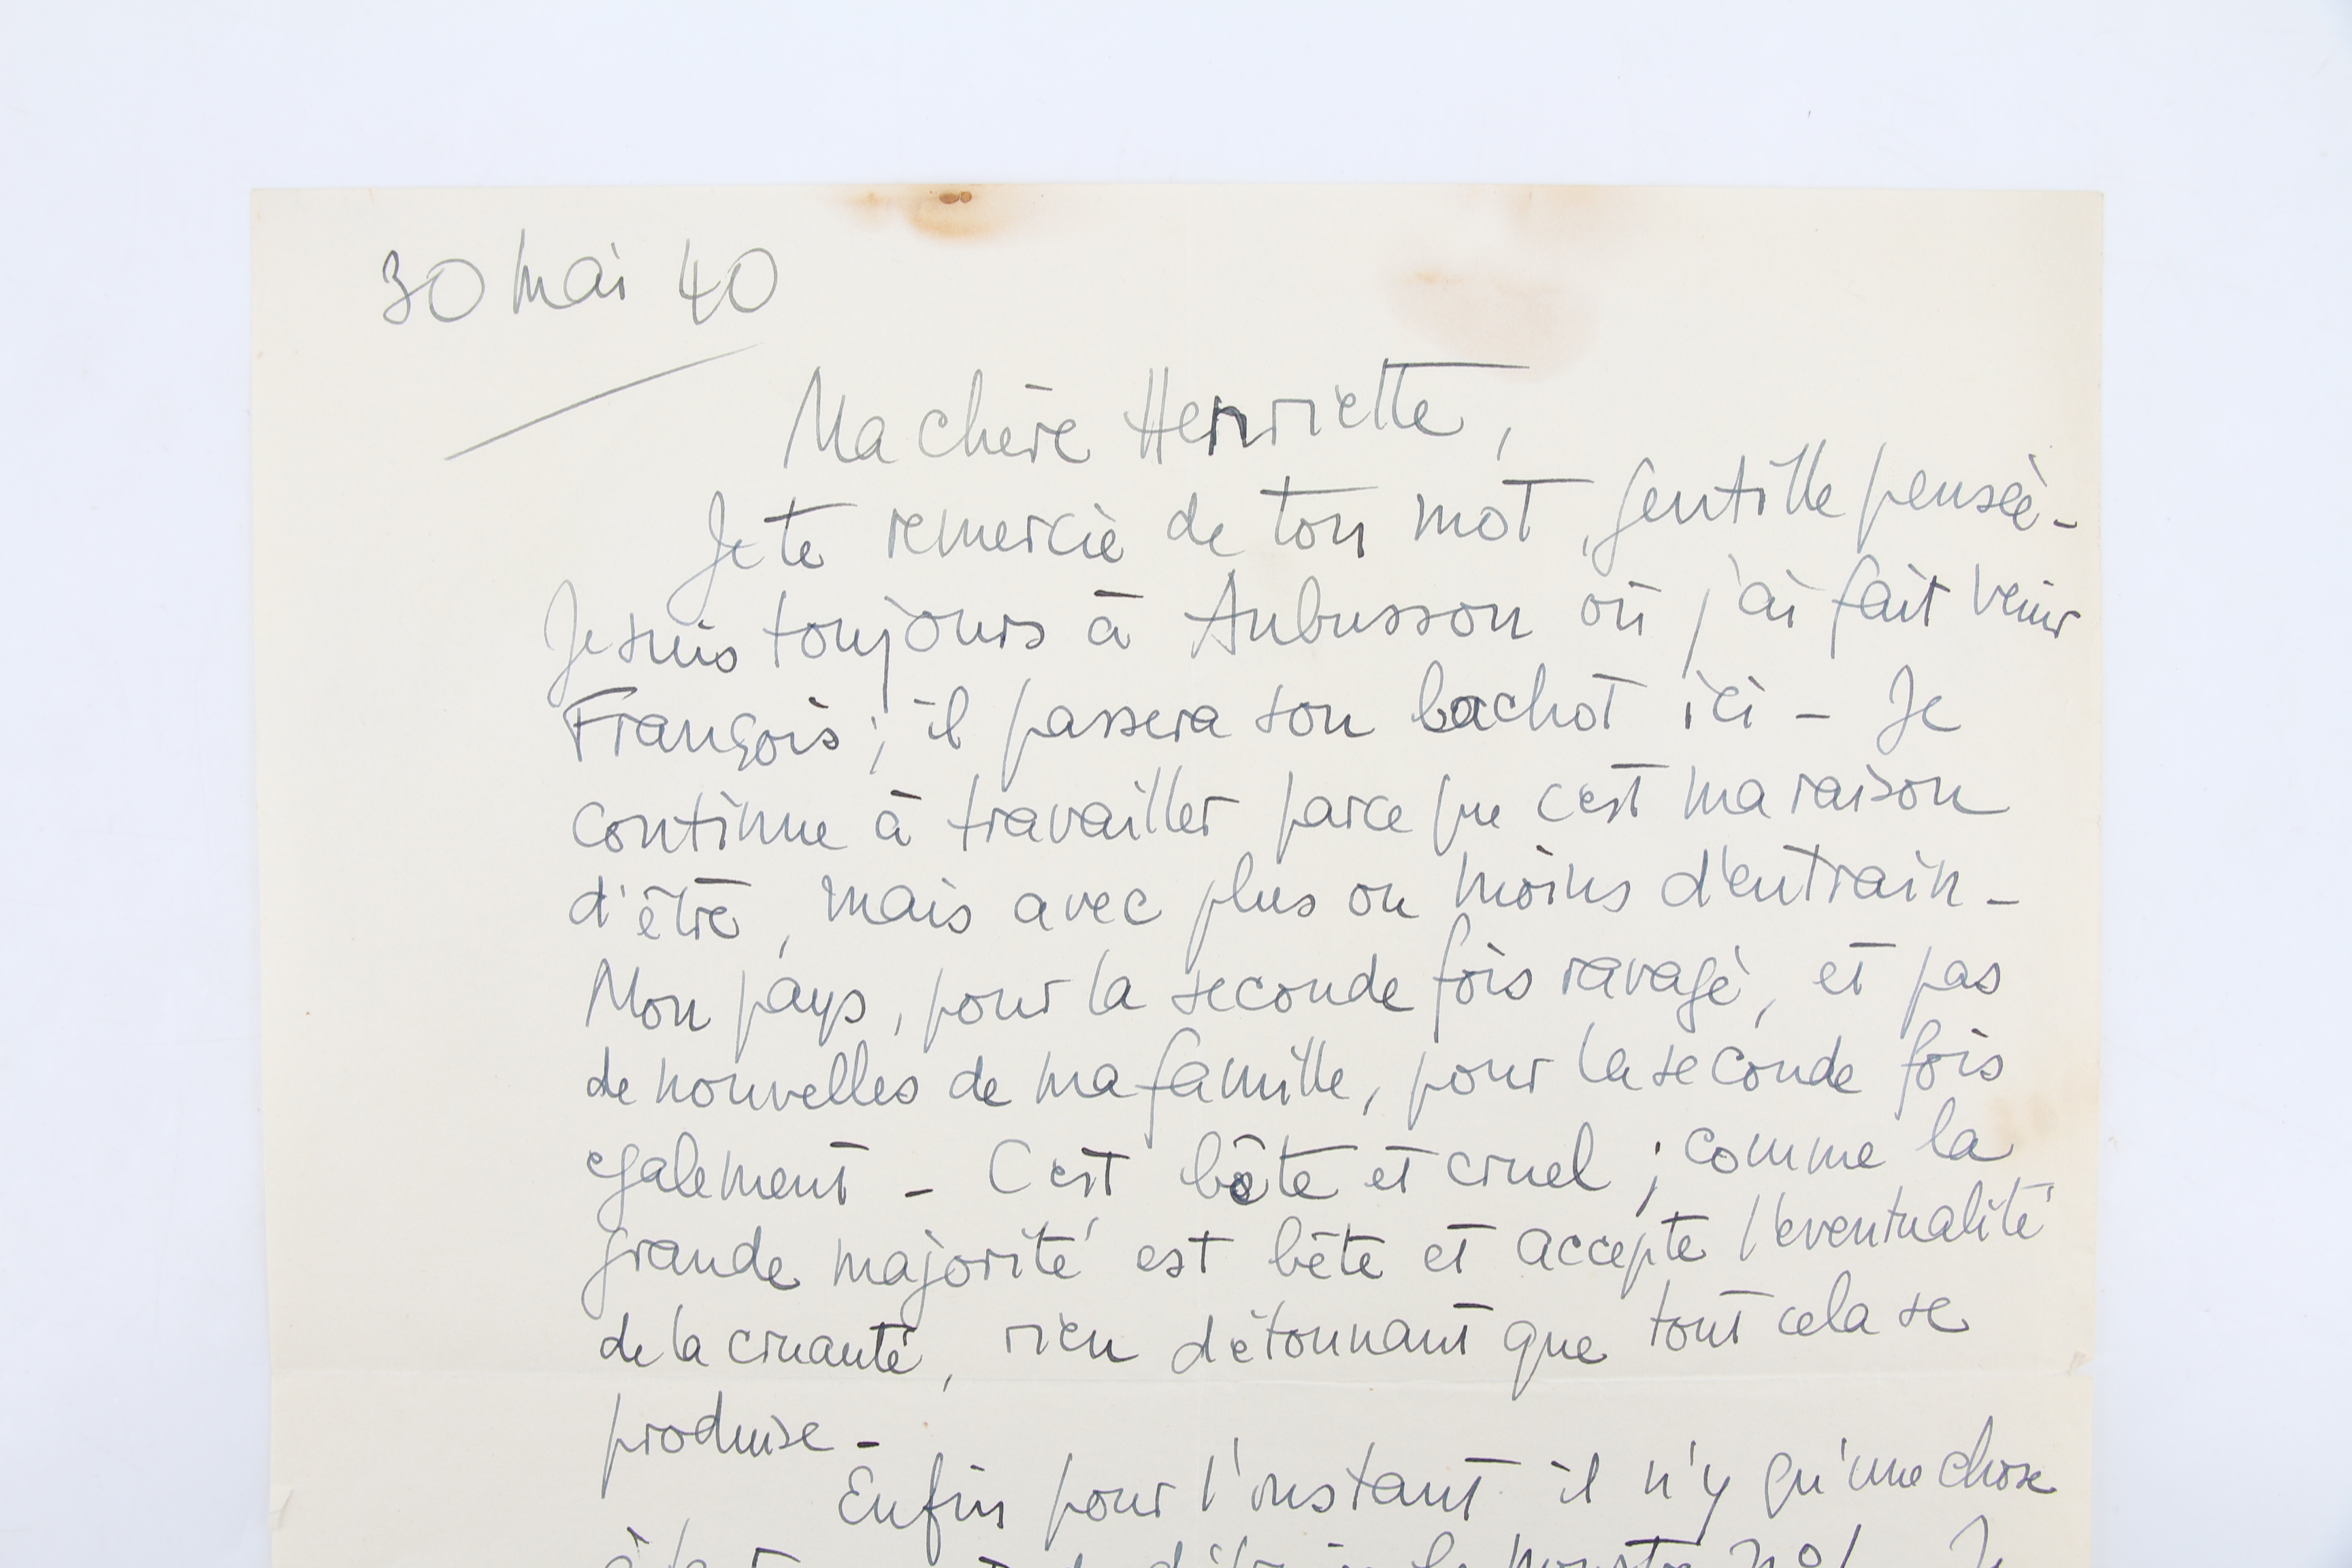 30 mai 40
Ma chère Henriette,
Je te remercie de ton mot, gentille pensée -
Je suis toujours à Aubusson où j'ai fait venir
François ; il passera son bachot ici - Je
continue à travailler parce que c'est ma raison
d'être, mais avec plus ou moins d'entrain -
Mon pays, pour la seconde fois ravagé, et pas
de nouvelles de ma famille, pour la seconde fois
egalement - C'est bête et cruel ; comme la
grande majorité est bête et accepte l'eventualité
de la cruauté, rien d'étonnant que tout cela se
produise -
Enfin pour l'instant il n'y qu'une chose